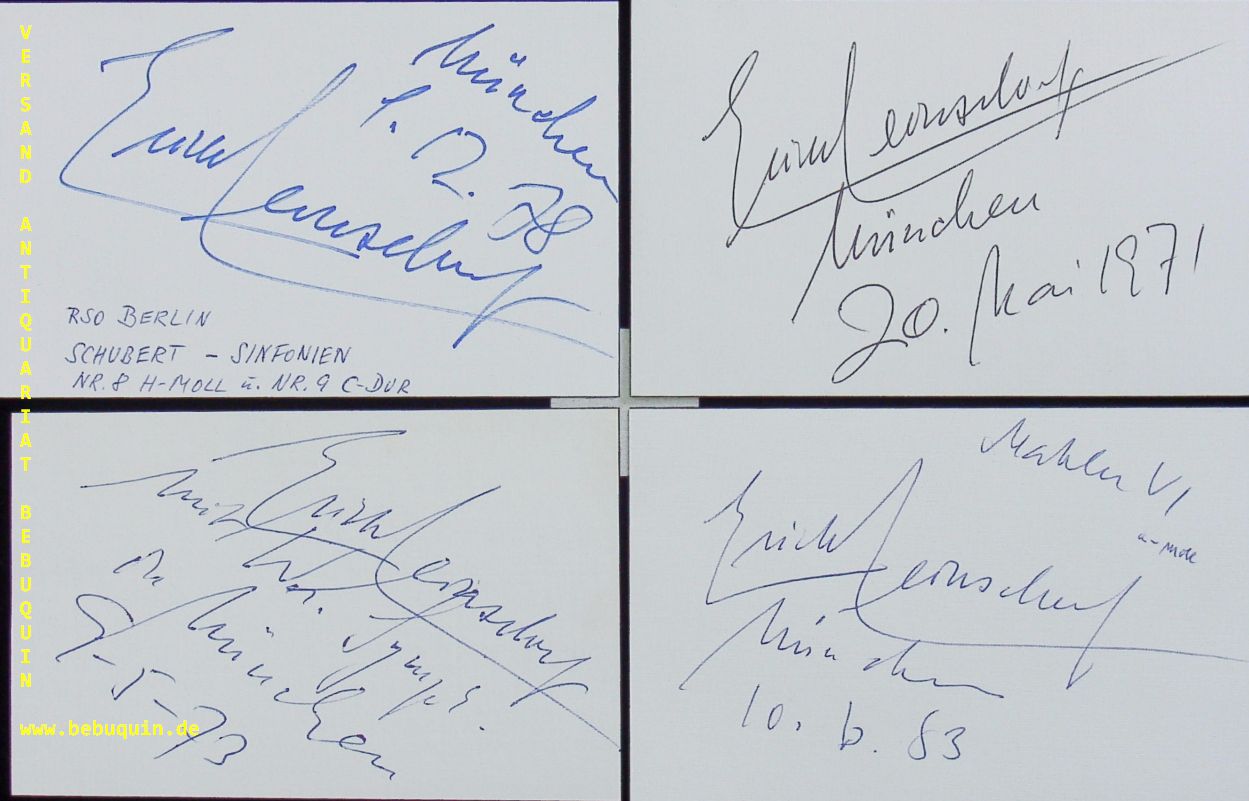 VERSAND ANTIQUARIAT BEBUQUIN
www.bebuquin.de
Erich Leinsdorf
München
1. 12. 78
RSO BERLIN
SCHUBERT – SINFONIEN
NR. 8 H-MOLL u. NR. 9 C-DUR
Erich Leinsdorf
München
20. Mai 1971
Erich Leinsdorf
mit
Symph.
in München
9-5-73
Mahler VI
a-moll
Erich Leinsdorf
München
10. 6. 83